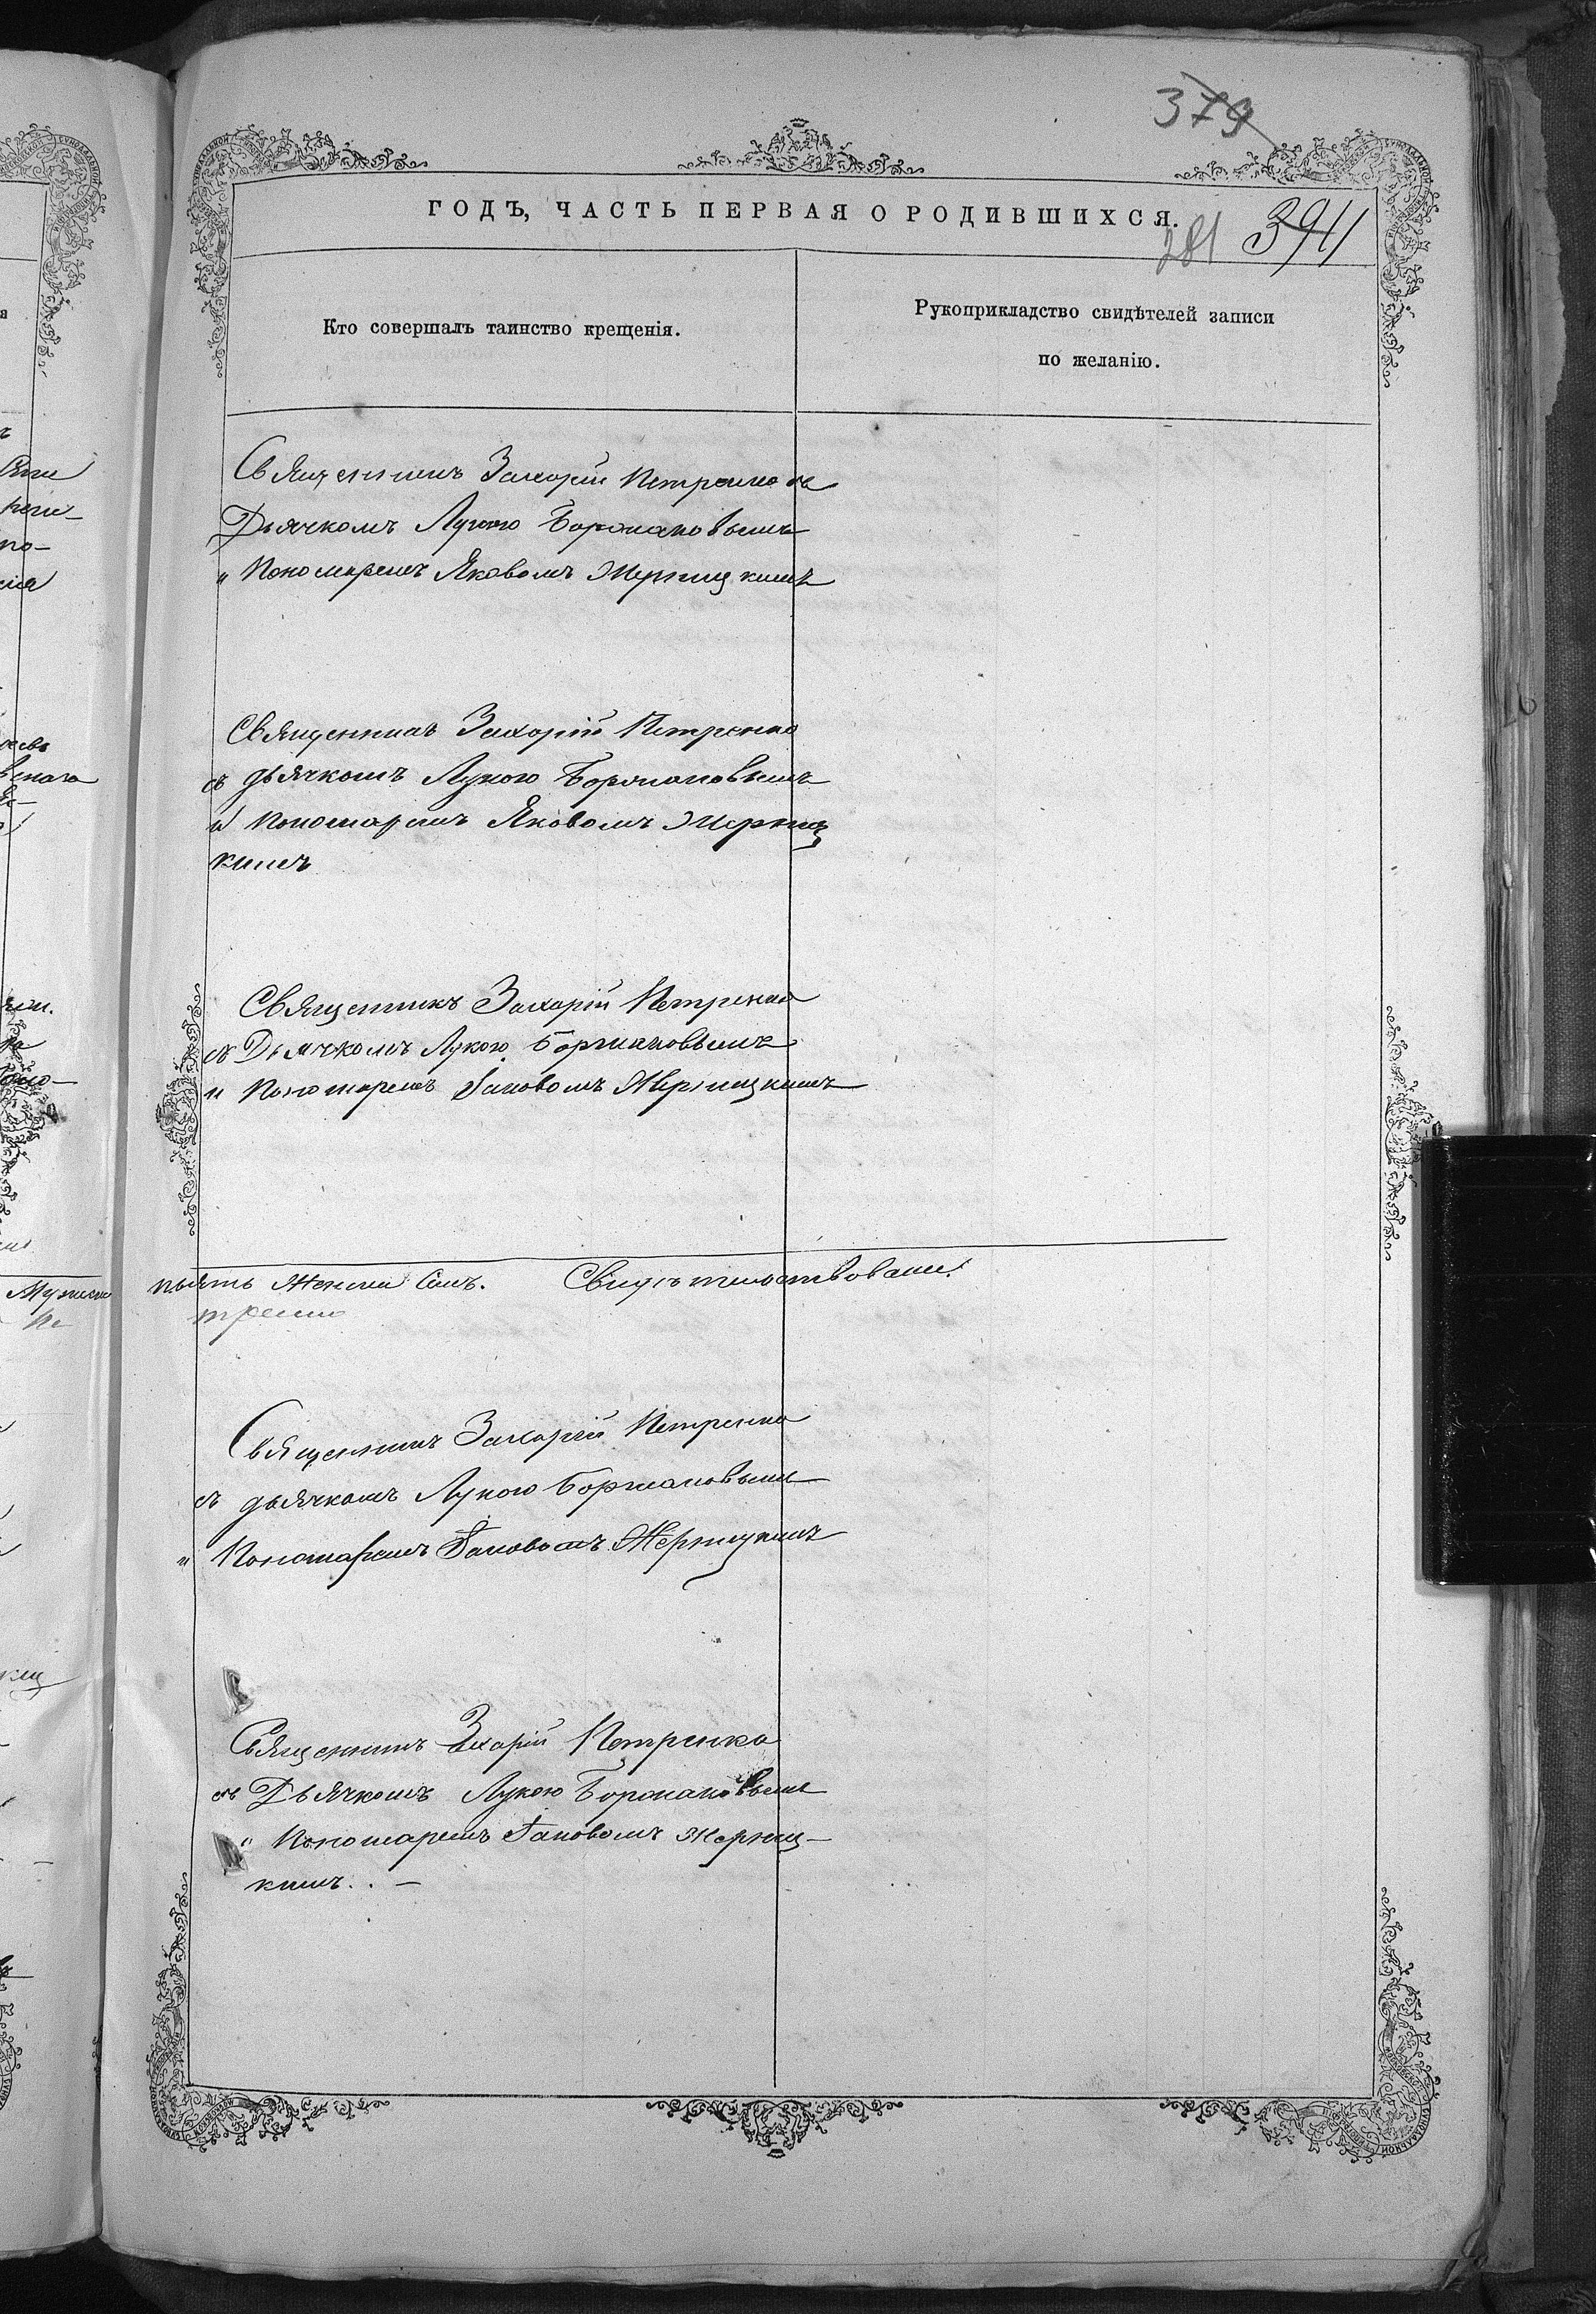 379
ГОДЪ, ЧАСТЬ ПЕРВАЯ О РОДИВШИХСЯ.
281 394
Кто совершалъ таинство крещенія.
Рукоприкладство свидѣтелей записи
по желанію.
Священникъ Захарій Петренко съ
Дьячкомъ Лукою Боржановымъ
и Пономаремъ Яковомъ Жерницкимъ
Священникъ Захорій Петренко
съ дьячкомъ Лукою Боржановымъ
и пономаремъ Яковомъ Жерниц
кимъ
Священникъ Захарій Петренко
съ Дьячкомъ Лукою Боржановымъ
и Пономаремъ Іаковомъ Жерницкимъ
пять Женска Свидѣтельствовалъ
Священникъ Захарій Петренко
съ дьячкомъ Лукою Боржановымъ
и Пономаремъ Іаковомъ Жерницкимъ
Священникъ Захарій Петренко
съ Дьячкомъ Лукою Боржановымъ
и Пономаремъ Іаковомъ Жерниц-
кимъ..—